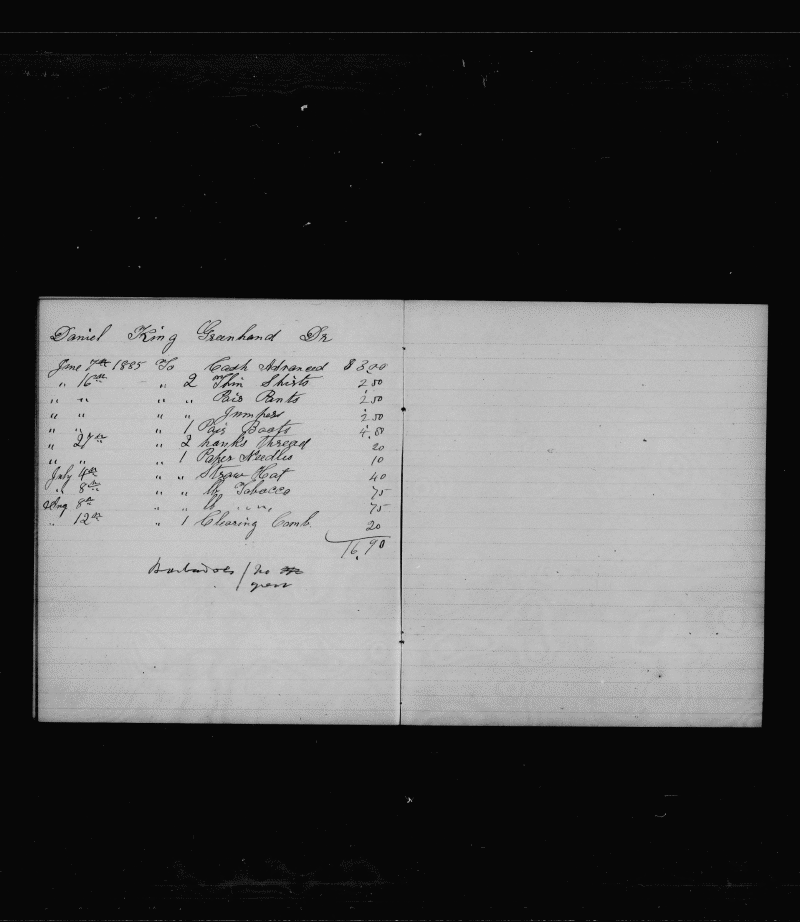 Daniel King Greenhand Dr
June 7th 1885 To Cash Advanced $ 3.00
" 16th " 2 Thin Shirts 2.50
" " " " Pair Pants 2.50
" " " " Jumpers 2.50
" " " 1 Pair Boots 4.50
" 27th " 2 hanks Thread 20
" " " 1 Paper Needles 10
July 4th " " Straw Hat 40
" 8th " " lb Tobacco 75
Aug 8th " " lb " " 75
" 12th " 1 Clearing Comb. 20
16.90
Barbadoes / no